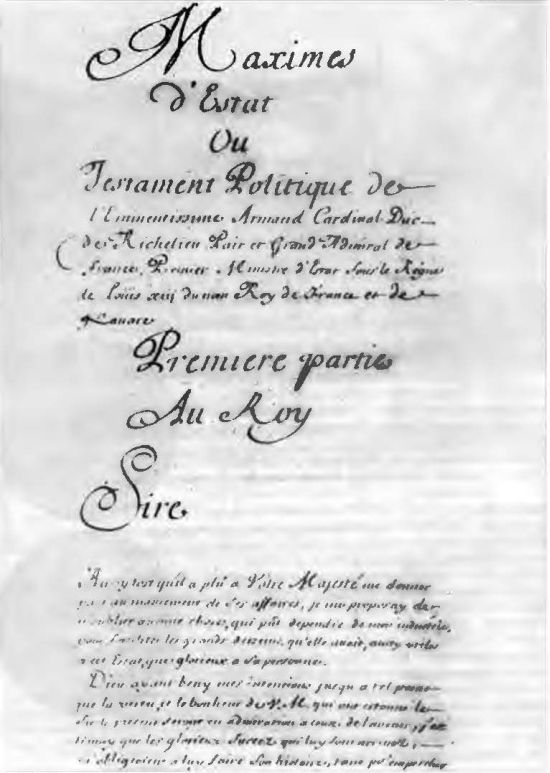 Maximes
d'Estat
Ou
Testament Politique de
l'Eminentissime Armand Cardinal Duc
de Richelieu Pair et Grand Admiral de
france, Premier Ministre d'Estat sous le Regne
de Loüis xiij du nom Roy de France et de
Nauare
Premiere partie
Au Roy
Sire
Aussy tost qu'il a plû a Vostre Majesté me donner
part au maniement de ses affaires, je me proposay de
n'oublier aucune chose, qui pût dependre de mon industrie,
pour faciliter les grands desseins, qu'elle avoit, aussy utiles
a cet Estat, que glorieux a sa personne.
Dieu ayant beny mes intentions jusqu'a tel
que la vertu, et le bonheur de V. M. qui ont estonné le
Siecle present seront en admiration a ceux de l'avenir, j'
que les glorieux Succez qui luy sont
m'obligeoient a luy faire son histoire, tant pour empescher